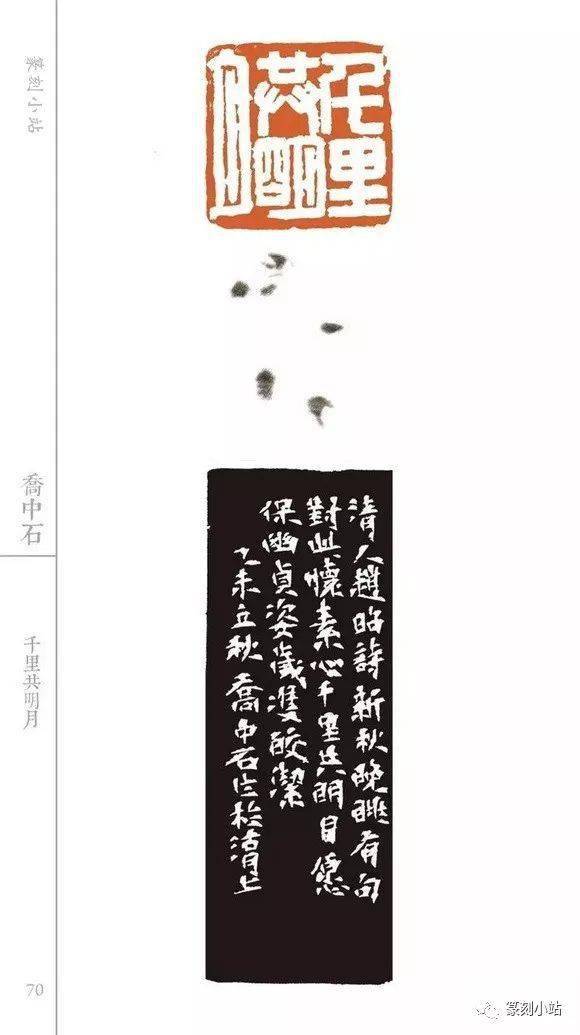 篆刻小站
千里
共明
月
清人趙昭詩新秋晚眺有句
對此懷素心千里共明月愿
保幽貞姿歲雙皎潔
乙未立秋喬中石作於上
喬中石
千里共明月
70
篆刻小站